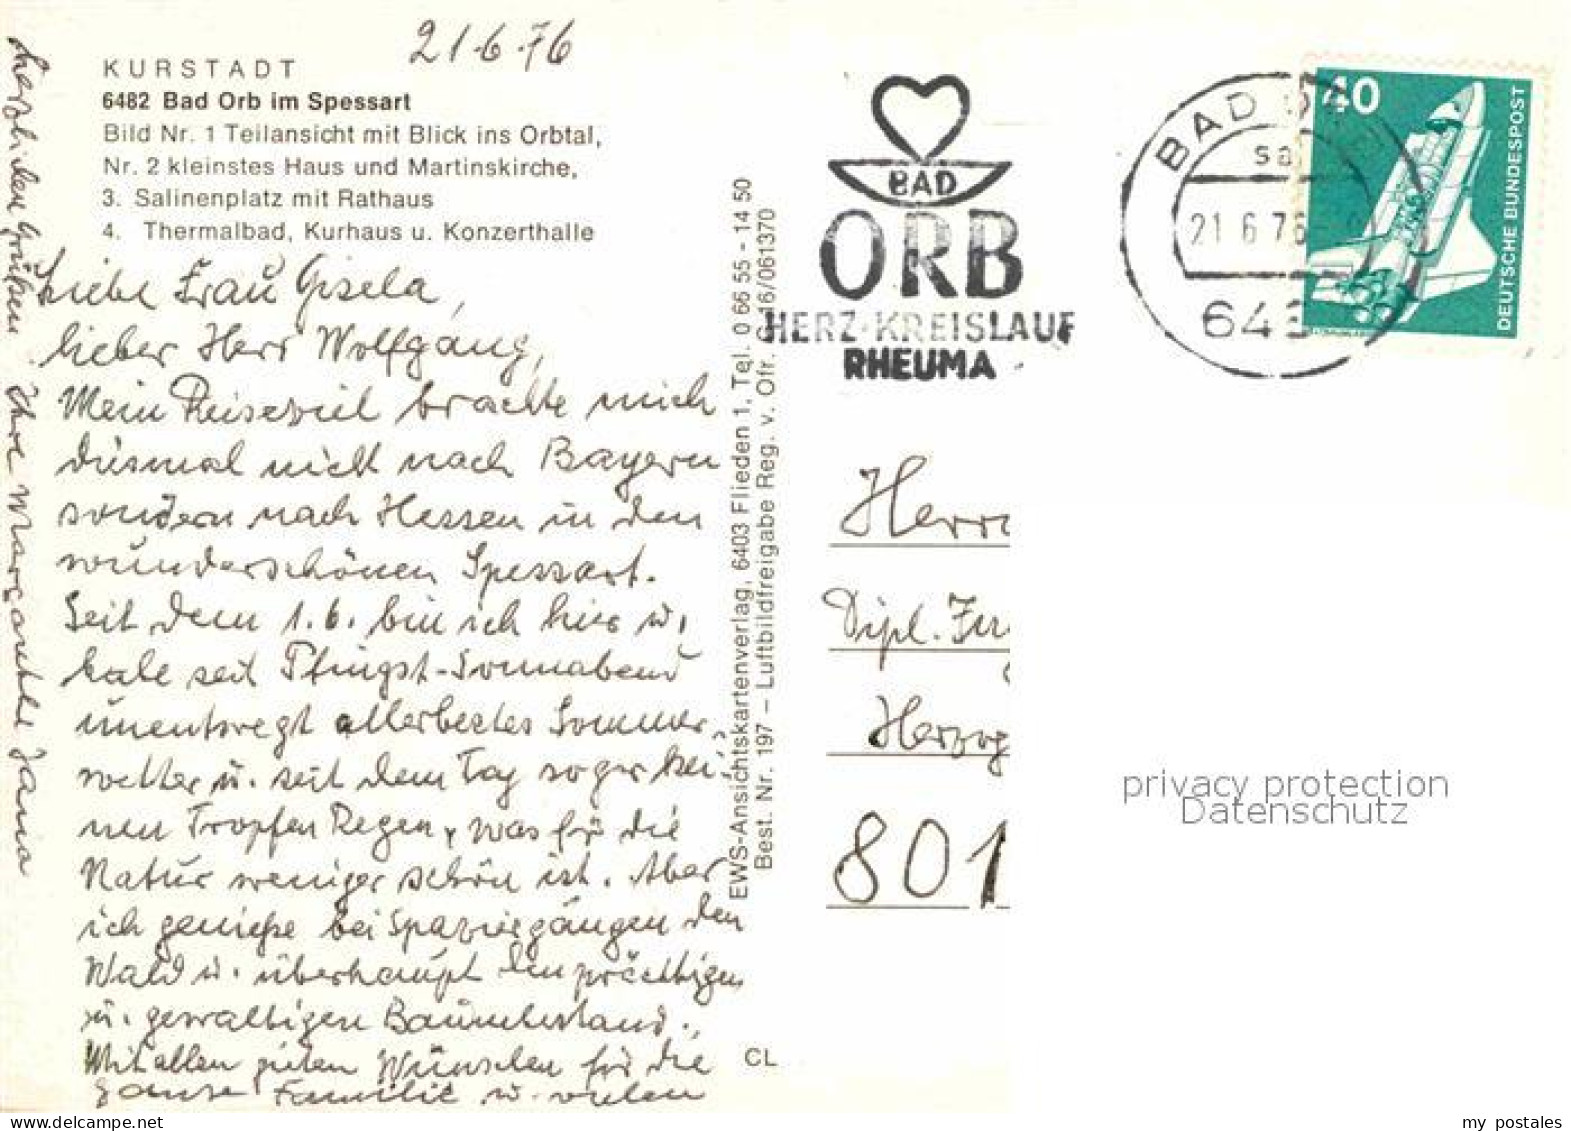 21.6.76
KURSTADT
6482 Bad Orb im Spessart
Bild Nr. 1 Teilansicht mit Blick ins Orbtal,
Nr. 2 kleinstes Haus und Martinskirche,
3. Salinenplatz mit Rathaus
4. Thermalbad, Kurhaus u. Konzerthalle
Liebe Frau Gisela,
lieber Herr Wolfgang,
Mein Reiseziel brachte mich
diesmal nicht nach Bayern
sondern nach Hessen in den
wunderschönen Spessart.
Seit dem 1.6. bin ich hier u.
habe seit Pfingst-Sonnabend
unentwegt allerbestes Sommer-
wetter u. seit dem Tag sogar kei-
nen Tropfen Regen, was für die
Natur weniger schön ist. Aber
ich genieße bei Spaziergängen den
Wald u. überhaupt den prächtigen
u. gewaltigen Baumbestand.
Mit allen guten Wünschen für die
ganze Familie u. vielen
herzlichen Grüßen Ihre Margarethe
EWS-Ansichtskartenverlag, 6403 Flieden 1, Tel. 0 66 55 - 14 50
Best. Nr. 197 – Luftbildfreigabe Reg. v. Ofr.
CL
BAD
ORB
HERZ-KREISLAUF
RHEUMA
BAD
21.6.76
40
DEUTSCHE BUNDESPOST
Herrn
Dipl.
Herzog
801
privacy protection
Datenschutz
www.delcampe.net
my_postales